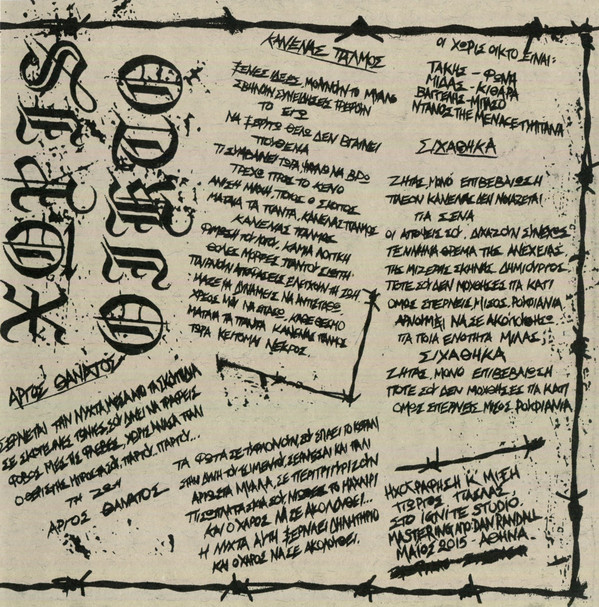 ΧΩΡΙΣ
ΟΙΚΤΟ
ΚΑΝΕΝΑΣ ΠΑΛΜΟΣ
ΞΕΝΕΣ ΙΔΕΕΣ, ΜΟΛΥΝΟΥΝ ΤΟ ΜΥΑΛΟ
ΣΒΗΝΟΥΝ ΣΥΝΕΙΔΗΣΕΙΣ ΤΡΕΦΟΥΝ
ΤΟ ΕΓΩ
ΝΑ ΞΕΦΥΓΩ ΘΕΛΩ ΔΕΝ ΒΓΑΙΝΕΙ
ΠΟΥΘΕΝΑ
ΤΙ ΣΥΜΒΑΙΝΕΙ ΤΩΡΑ, ΨΑΧΝΩ ΝΑ ΒΡΩ
ΤΡΕΧΩ ΠΡΟΣ ΤΟ ΚΕΝΟ
ΑΝΙΣΗ ΜΑΧΗ, ΠΟΙΟΣ Ο ΣΚΟΠΟΣ
ΜΑΤΑΙΑ ΤΑ ΠΑΝΤΑ, ΚΑΝΕΝΑΣ ΠΑΛΜΟΣ
ΚΑΝΕΝΑΣ ΠΑΛΜΟΣ
ΦΙΜΩΣΗ ΤΟΥ ΛΟΓΟΥ, ΚΑΜΙΑ ΛΟΓΙΚΗ
ΘΟΛΕΣ ΜΟΡΦΕΣ ΠΑΝΤΟΥ ΣΙΩΠΗ
ΠΑΙΡΝΟΥΝ ΑΠΟΦΑΣΕΙΣ ΕΛΕΓΧΟΥΝ ΤΗ ΖΩΗ
ΜΑΖΕΥΩ ΔΥΝΑΜΕΙΣ ΝΑ ΑΝΤΙΣΤΑΘΩ
ΧΡΕΟΣ ΜΟΥ ΝΑ ΣΠΑΣΩ, ΚΑΘΕ ΘΕΣΜΟ
ΜΑΤΑΙΑ ΤΑ ΠΑΝΤΑ ΚΑΝΕΝΑΣ ΠΑΛΜΟΣ
ΤΩΡΑ ΚΕΙΤΟΜΑΙ ΝΕΚΡΟΣ.
ΟΙ ΧΩΡΙΣ ΟΙΚΤΟ ΕΙΝΑΙ:
ΤΑΚΗΣ - ΦΩΝΗ
ΜΙΔΑΣ - ΚΙΘΑΡΑ
ΒΑΓΓΕΛΗΣ - ΜΠΑΣΟ
ΝΤΑΝΟΣ THE MENACE - ΤΥΜΠΑΝΑ
ΣΙΧΑΘΗΚΑ
ΖΗΤΑΣ, ΜΟΝΟ ΕΠΙΒΕΒΑΙΩΣΗ
ΠΛΕΟΝ ΚΑΝΕΝΑΣ ΔΕΝ ΝΟΙΑΖΕΤΑΙ
ΓΙΑ ΣΕΝΑ
ΟΙ ΑΠΟΨΕΙΣ ΣΟΥ, ΔΙΧΑΖΟΥΝ ΣΥΝΕΧΩΣ
ΓΕΝΝΗΜΑ ΘΡΕΜΑ ΤΗΣ ΑΝΕΧΕΙΑΣ
ΤΗΣ ΜΙΖΕΡΗΣ ΣΚΗΝΗΣ, ΔΗΜΙΟΥΡΓΟΣ
ΠΟΤΕ ΣΟΥ ΔΕΝ ΜΟΧΘΗΣΕΣ ΓΙΑ ΚΑΤΙ
ΟΜΩΣ ΣΠΕΡΝΕΙΣ ΜΙΣΟΣ, ΡΟΥΦΙΑΝΙΑ
ΑΡΝΟΥΜΑΙ ΝΑ ΣΕ ΑΚΟΛΟΥΘΗΣΩ
ΓΙΑ ΠΟΙΑ ΕΝΟΤΗΤΑ ΜΙΛΑΣ;
ΣΙΧΑΘΗΚΑ
ΖΗΤΑΣ, ΜΟΝΟ ΕΠΙΒΕΒΑΙΩΣΗ
ΠΟΤΕ ΣΟΥ ΔΕΝ ΜΟΧΘΗΣΕΣ ΓΙΑ ΚΑΤΙ
ΟΜΩΣ ΣΠΕΡΝΕΙΣ ΜΙΣΟΣ, ΡΟΥΦΙΑΝΙΑ
ΑΡΓΟΣ ΘΑΝΑΤΟΣ
ΣΕΡΝΕΤΑΙ ΤΗΝ ΝΥΧΤΑ, ΜΕΣΑ ΑΠΟ ΤΑ ΣΚΟΥΠΙΔΙΑ
ΣΕ ΣΚΟΤΕΙΝΕΣ ΓΩΝΙΕΣ ΣΟΥ ΔΙΝΕΙ ΝΑ
ΦΟΒΟΣ ΜΕΣ ΤΙΣ ΦΛΕΒΕΣ, ΧΩΡΙΣ ΑΝΑΣΑ ΠΑΛΙ
Ο ΘΕΡΙΣΤΗΣ ΜΠΡΟΣΤΑ ΣΟΥ, ΠΑΡΤΟΥ, ΠΑΡΤΟΥ...
ΤΗ ΖΩΗ
ΑΡΓΟΣ ΘΑΝΑΤΟΣ
ΤΑ ΦΩΤΑ ΣΕ ΤΥΦΛΩΝΟΥΝ, ΣΟΥ ΣΠΑΕΙ ΤΟ ΚΕΦΑΛΙ
ΣΤΗΝ ΔΙΝΗ ΤΟΥ ΤΣΙΜΕΝΤΟΥ, ΣΕΡΝΕΣΑΙ ΚΑΙ ΠΑΛΙ
ΑΡΡΩΣΤΑ ΜΥΑΛΑ, ΣΕ ΠΕΡΙΤΡΙΓΥΡΙΖΟΥΝ
ΤΟ ΜΑΧΑΙΡΙ
ΚΑΙ Ο ΧΑΡΟΣ ΝΑ ΣΕ ΑΚΟΛΟΥΘΕΙ...
Η ΝΥΧΤΑ ΑΥΤΗ ΞΕΡΝΑΕΙ ΔΗΛΗΤΗΡΙΟ
ΚΑΙ Ο ΧΑΡΟΣ ΝΑ ΣΕ ΑΚΟΛΟΥΘΕΙ.
ΗΧΟΓΡΑΦΗΣΗ Κ' ΜΙΞΗ
ΓΙΩΡΓΟΣ
ΣΤΟ IGNITE STUDIO.
MASTERING ΑΠΟ DAN RANDALL
ΜΑΪΟΣ 2015 - ΑΘΗΝΑ.